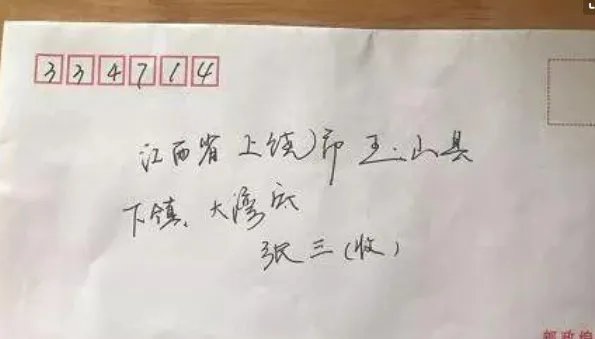 334714
江西省上饶市玉山县
下镇、大湾底
张三(收)
邮政编